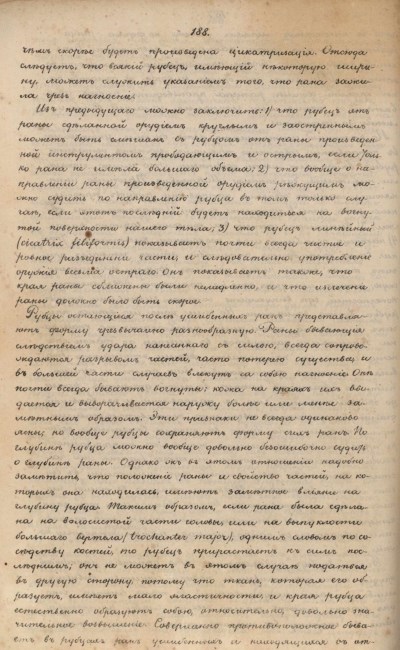 188.
чѣмъ скорѣе будетъ произведена цикатризація. Отсюда
слѣдуетъ, что всякій рубецъ, имѣющій нѣкоторую шири-
ну, можетъ служить указаніемъ того, что рана зажи-
ла чрезъ нагноеніе.
Изъ предыдущаго можно заключить: 1) что рубецъ отъ
раны сдѣланной орудіемъ круглымъ и заостреннымъ
можетъ быть смѣшанъ съ рубцомъ отъ раны произведен-
ной инструментомъ прободающимъ и острымъ, если толь-
ко рана не имѣла большаго объема; 2) что вообще о на-
правленіи раны произведенной орудіемъ рѣжущимъ мо-
жно судить по направленію рубца въ томъ только слу-
чаѣ, если этотъ послѣдній будетъ находиться на вогну-
той поверхности нашего тѣла; 3) что рубецъ линейный
(cicatrix filiformis) показываетъ почти всегда чистое и
ровное разъединеніе части, и слѣдовательно употребленіе
орудія весьма остраго. Онъ показываетъ также, что
края раны сближены были немедленно, и что излеченіе
раны должно было быть скорое.
Рубцы остающіеся послѣ ушибенныхъ ранъ представля-
ютъ форму чрезвычайно разнообразную. Раны бывающія
слѣдствіемъ удара нанесеннаго съ силою, всегда сопрово-
ждаются разрывомъ частей, часто потерею существа, и
въ большей части случаевъ влекутъ за собою нагноеніе. Онѣ
почти всегда бываютъ вогнуты; кожа на краяхъ ихъ вы-
дается и выворачивается наружу болѣе или менѣе за-
мѣтнымъ образомъ. Эти признаки не всегда одинаково
ясны; но вообще рубцы сохраняютъ форму сихъ ранъ. По
глубинѣ рубца можно вообще довольно безошибочно судить
о глубинѣ раны. Однако жъ въ этомъ отношеніи надобно
замѣтить, что положеніе раны и свойство частей, на ко-
торыхъ она находилась, имѣютъ замѣтное вліяніе на
глубину рубца. Такимъ образомъ, если рана была сдѣла-
на на волосистой части головы, или на выпуклости
большаго вертела (trochanter major), однимъ словомъ по со-
сѣдству костей, то рубецъ прирастаетъ къ симъ пос-
лѣднимъ; онъ не можетъ въ этомъ случаѣ податься
въ другую сторону, потому что ткань, которая его об-
разуетъ, имѣетъ мало эластичности; и края рубца
естественно образуютъ собою, относительно, довольно зна-
чительное возвышеніе. Совершенно противоположное быва-
етъ въ рубцахъ ранъ ушибенныхъ и находящихся въ